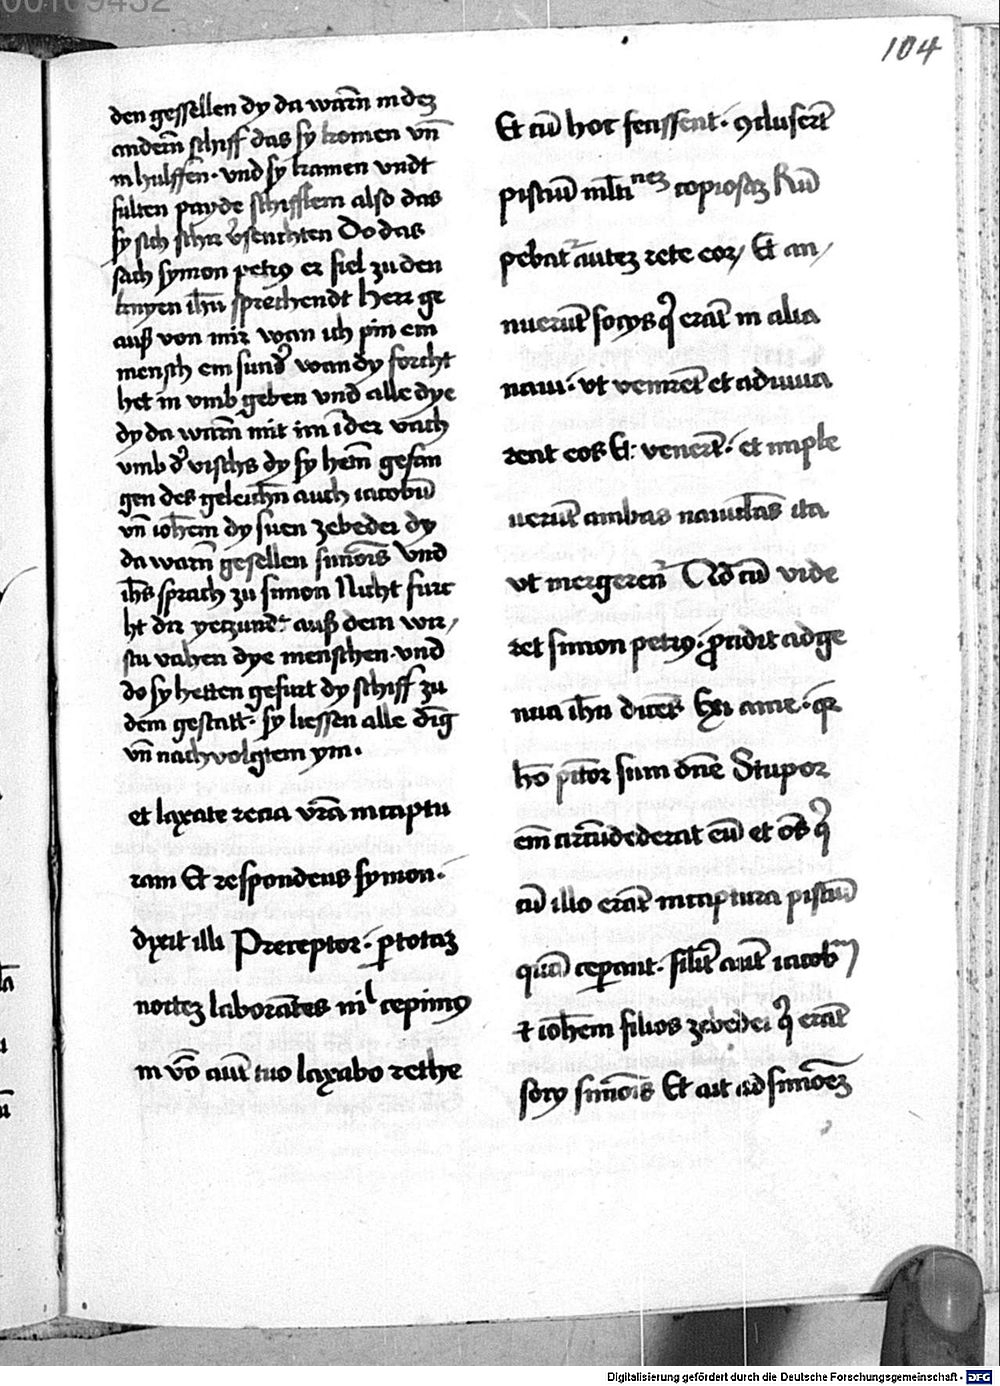 104
den gesellen dy da warn̄ in dez
andern̄ schiff das sy komen vn̄
in hulffen · vnd sy kamen vndt
fulten payde schifflein also das
sy sich schir v̓senchten Do das
sach symon petrꝰ er fiel zu den
knyen ih̄u sprechendt herr ge
auß von mir wan ich pin ein
mensch ein sund̓ wan dy forcht
het in vmb geben vnd alle dye
dy da warn̄ mit im ī der vach
vmb d̓ vischs dy sy hem̄ gefan
gen des geleich̄n auch iacobū
vn̄ ioh̄em dy suen zebedei dy
da warn̄ gesellen simōis vnd
ih̄s sprach zu simon Nicht furc
ht dir yetzund · auß dem wir/
stu vahen dye menschen · vnd
do sy hetten gefurt dy schiff zu
dem gestatt · sy liessen alle dīg
vn̄ nachvolgtem ym ·
et laxate recia vr̄a in captu
ram Et respondens symon ·
dixit illi Preceptor · ꝑ totaz
noctez laborātes nil cepimꝰ
in v̄o aūt tuo laxabo rethe
Et cū hoc fecissent · ꝯcluserūt
pisciū ml̄tinez copiosaz Rū
pebat̉ autez rete eoꝝ Et an/
nuerūt socijs q̇ erāt in alia
naui · vt venirēt et adiuua
rent eos Et venerūt · et imple
uerūt ambas nauicl̄as ita
vt mergerent̉ Qd̄ cū vide
ret simon petrꝰ · ꝓcidit ad ge
nua ih̄u dicēs Exi a me · qꝛ
hō pc̄tor sum dn̄e Stupor
em̄ circūdederat eū et oēs q̇
cū illo erāt in captura pisciū
quā ceperant · silit̄ aūt iacobum
⁊ ioh̄em filios zebedei q̇ erāt
socij simōis Et ait ad simōez
Digitalisierung gefördert durch die Deutsche Forschungsgemeinschaft - DFG